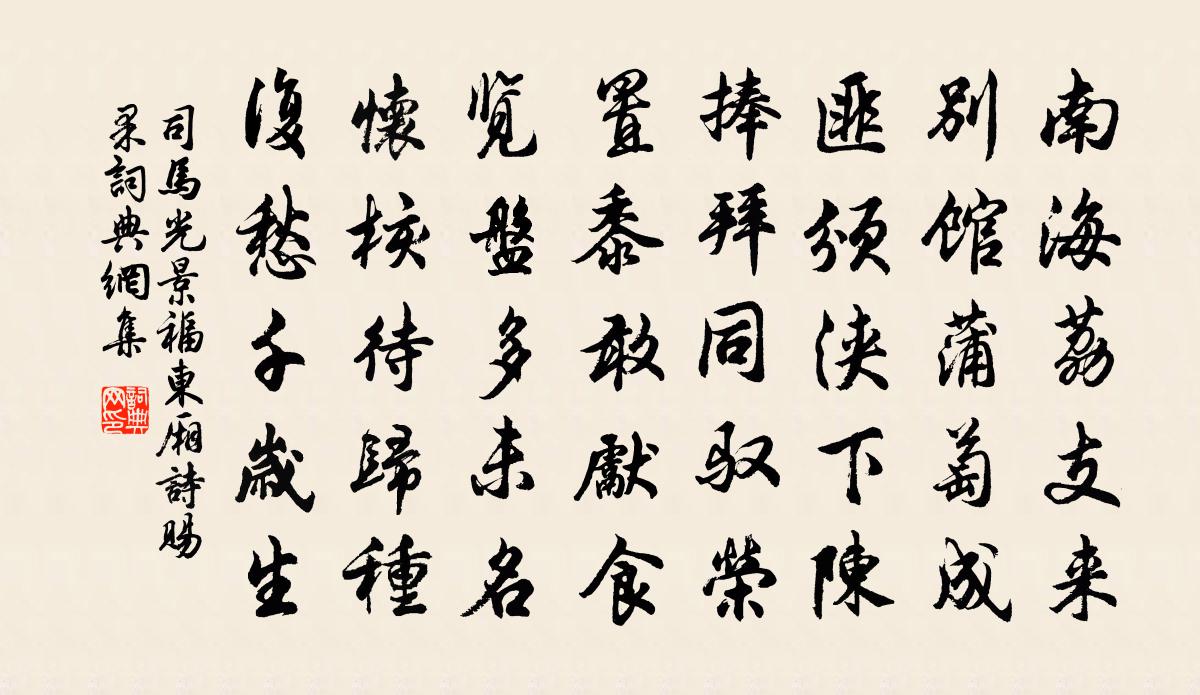 南海荔支来
別館蒲萄成
匪頒浹下陳
捧拜同馭榮
置黍敢獻食
覽盤多未名
懷核待歸種
復愁千歲生
司馬光景福東廂詩賜
果詞典網集
詞典
网印